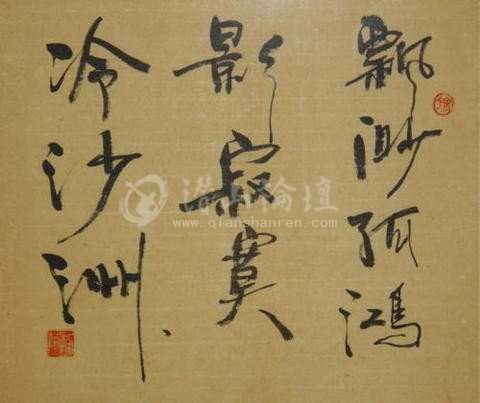 飄渺孤鴻
影寂寞
冷沙洲
潜山論壇
www.qianshanren.com